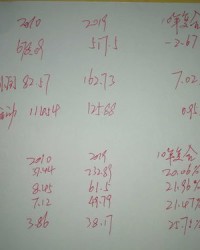 2010 2019 10年复合
517.5 -2.67
82.57 162.73 7.02
11454 12588 0.95
2010 2019 10年复合
37.44 232.89 20.06%
8.45 61.5 21.96%
7.12 49.79 21.47%
3.86 38.17 25.75%